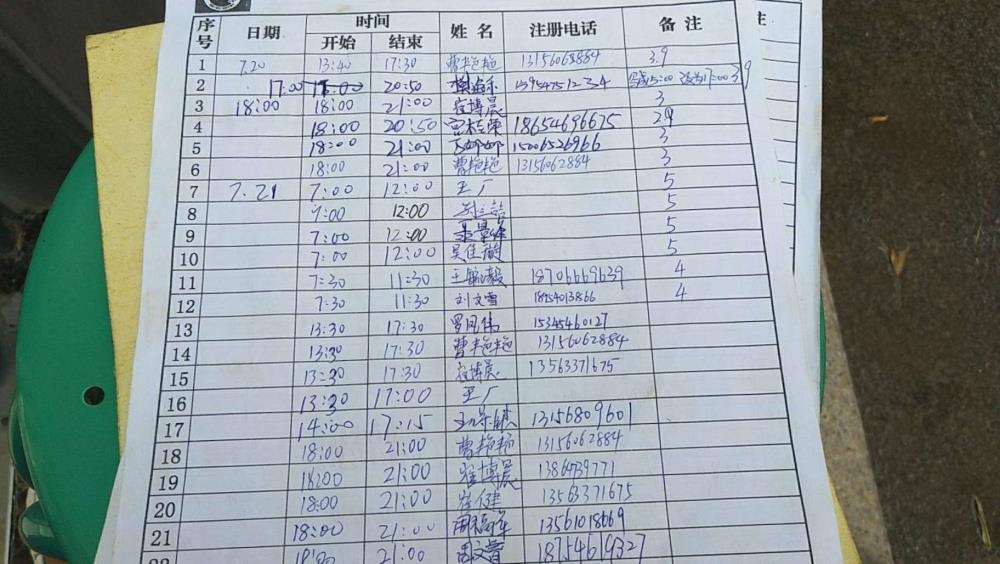 序号 日期 时间 开始 结束 姓名 注册电话 备注
1 7.20 13:40 17:30 曹艳艳 13156062884 3.9
2 17:00 20:50 13954751234 3.9
3 18:00 18:00 21:00 崔博晨 3
4 18:00 20:50 18654696675 2.9
5 18:00 21:00 15006526966 3
6 18:00 21:00 曹艳艳 13156062884 3
7 7.21 7:00 12:00 王厂 5
8 7:00 12:00 5
9 7:00 12:00 5
10 7:00 12:00 吴佳璇 5
11 7:30 11:30 王毓毅 18706669639 4
12 7:30 11:30 刘文雪 18954013866 4
13 13:30 17:30 15345460127
14 13:30 17:30 曹艳艳 13156062884
15 13:30 17:30 崔博晨 13563371675
16 13:30 17:00 王厂
17 14:00 17:15 13156809601
18 18:00 21:00 曹艳艳 13156062884
19 18:00 21:00 崔博晨
20 18:00 21:00 崔健 13563371675
21 18:00 21:00 13561018669
18:00 21:00 18754619327
注